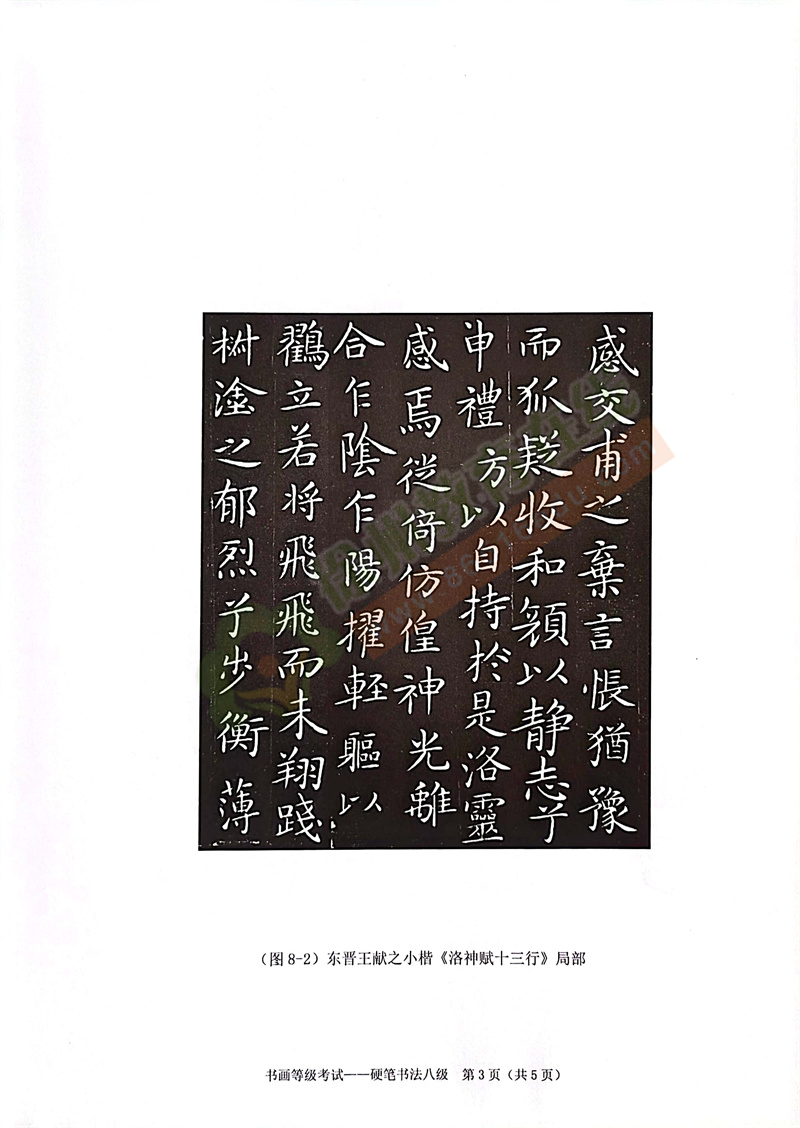 感交甫之棄言悵猶豫
而狐疑收和顏以静志兮
申禮方以自持於是洛靈
感焉徙倚仿偟神光離
合乍陰乍陽擢輕軀以
鶴立若將飛飛而未翔踐
椒塗之郁烈兮步衡薄
（图8-2）东晋王献之小楷《洛神赋十三行》局部
书画等级考试——硬笔书法八级 第3页（共5页）